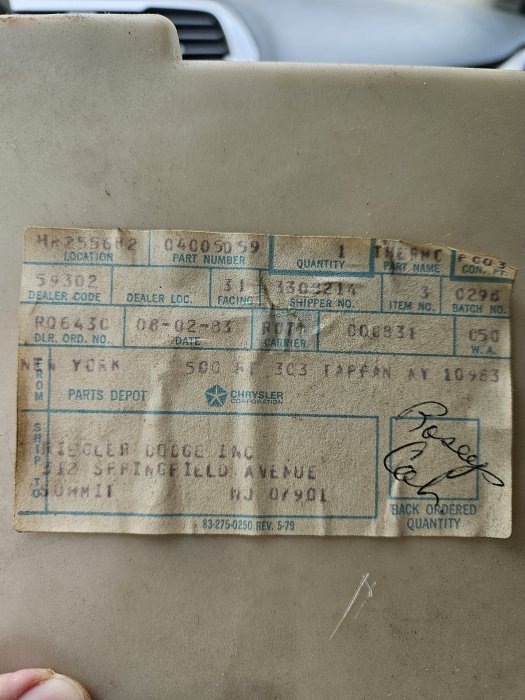 HR255682 04005059 1 FC03
LOCATION PART NUMBER QUANTITY PART NAME CON. PT.
59302 31 3309214 3 0298
DEALER CODE DEALER LOC. FACING SHIPPER NO. ITEM NO. BATCH NO.
R06430 08-02-83 000831 050
DLR. ORD. NO. DATE CARRIER W. A.
FROM NEW YORK 500 RT 303 TAPPAN NY 10983
PARTS DEPOT CHRYSLER
CORPORATION
SHIP TO
RIEGLER DODGE INC
312 SPRINGFIELD AVENUE
SUMMIT NJ 07901
BACK ORDERED
QUANTITY
83-275-0250 REV. 5-79